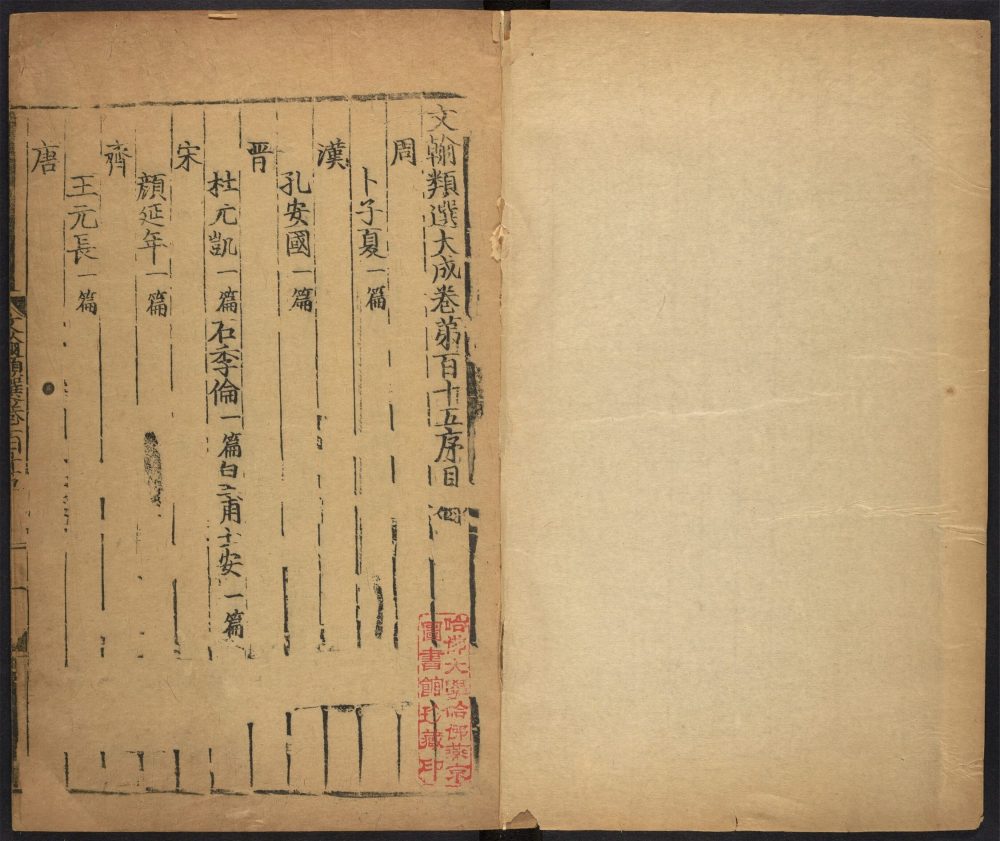 文翰類選大成卷第百十五序目 四
周
卜子夏一篇
漢
孔安國一篇
晋
杜元凱一篇石季倫一篇白王甫士安一篇
宋
顔延年一篇
齊
王元長一篇
唐
哈佛大學哈佛燕京
圖書館珍藏印